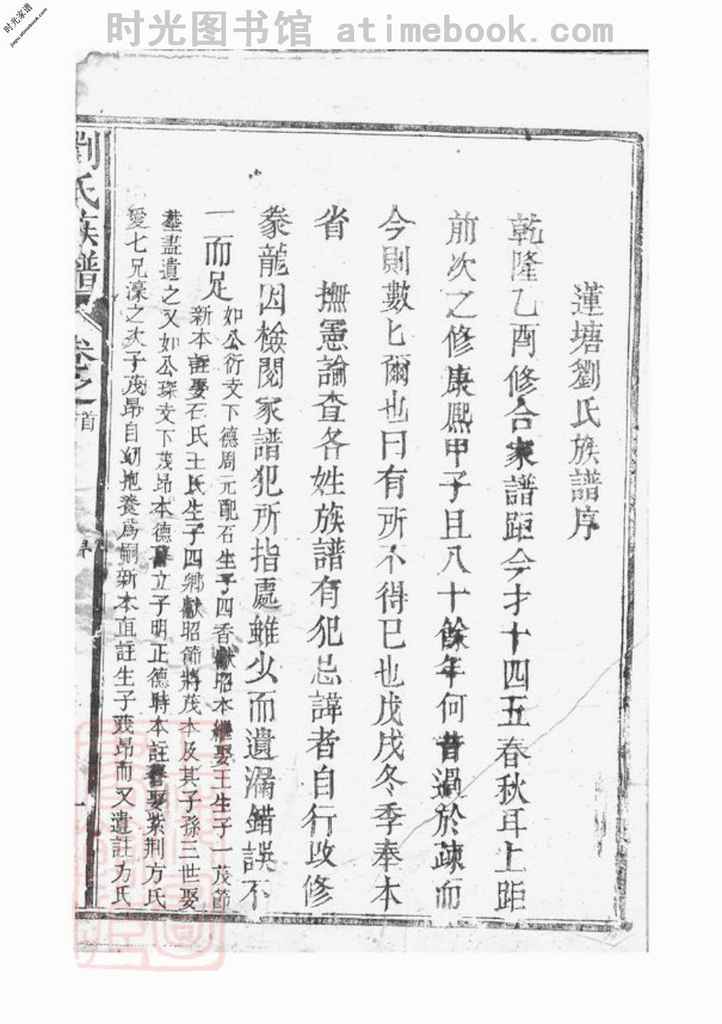 时光图书馆 atimebook.com
时光家谱
jiapu.atimebook.com
蓮塘劉氏族譜序
乾隆乙酉修合家譜距今才十四五春秋耳上距
前次之修康熙甲子且八十餘年何昔過於疎而
今則數匕爾也曰有所不得已也戊戌冬季奉本
省 撫憲諭查各姓族譜有犯忌諱者自行改修
豢龍因檢閱家譜犯所指處雖少而遺漏錯誤不
一而足
如公衍支下德周元配石生子四香獻昭本繼娶王生子一茂節
新本註娶石氏王氏生子四鄉獻昭節將茂本及其子孫三世娶
塟盡遺之又如公琛支下茂昂本德立子明正德時本註舊娶紫荆方氏
愛七兄濠之次子茂昂自幼抱養爲嗣新本直註生子茂昂而又遺註方氏
劉氏族譜
卷之首
一